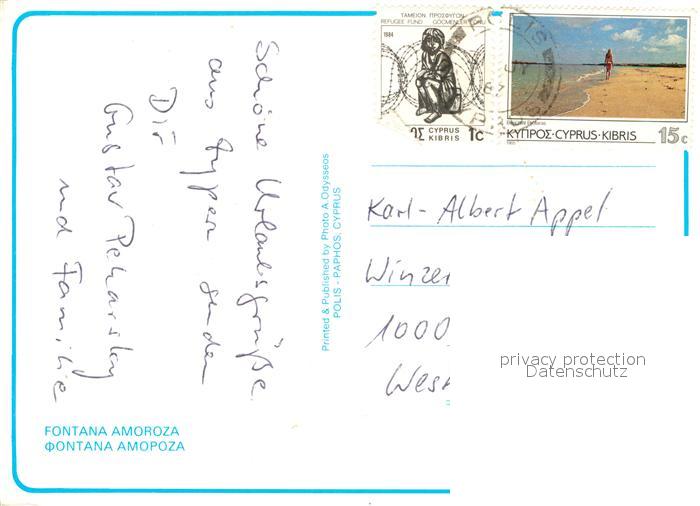 Schöne Urlaubsgrüße
aus Zypern senden
Dir
Gustav
und Familie
FONTANA AMOROZA
ΦΟΝΤΑΝΑ ΑΜΟΡΟΖΑ
Printed & Published by Photo A.Odysseos
POLIS - PAPHOS: CYPRUS
ΤΑΜΕΙΟΝ ΠΡΟΣΦΥΓΩΝ
REFUGEE FUND GÖÇMENLER FONU
1984
CYPRUS
KIBRIS
1c
ΚΥΠΡΟΣ·CYPRUS·KIBRIS 15c
1985
Karl-Albert Appel
1000
privacy protection
Datenschutz